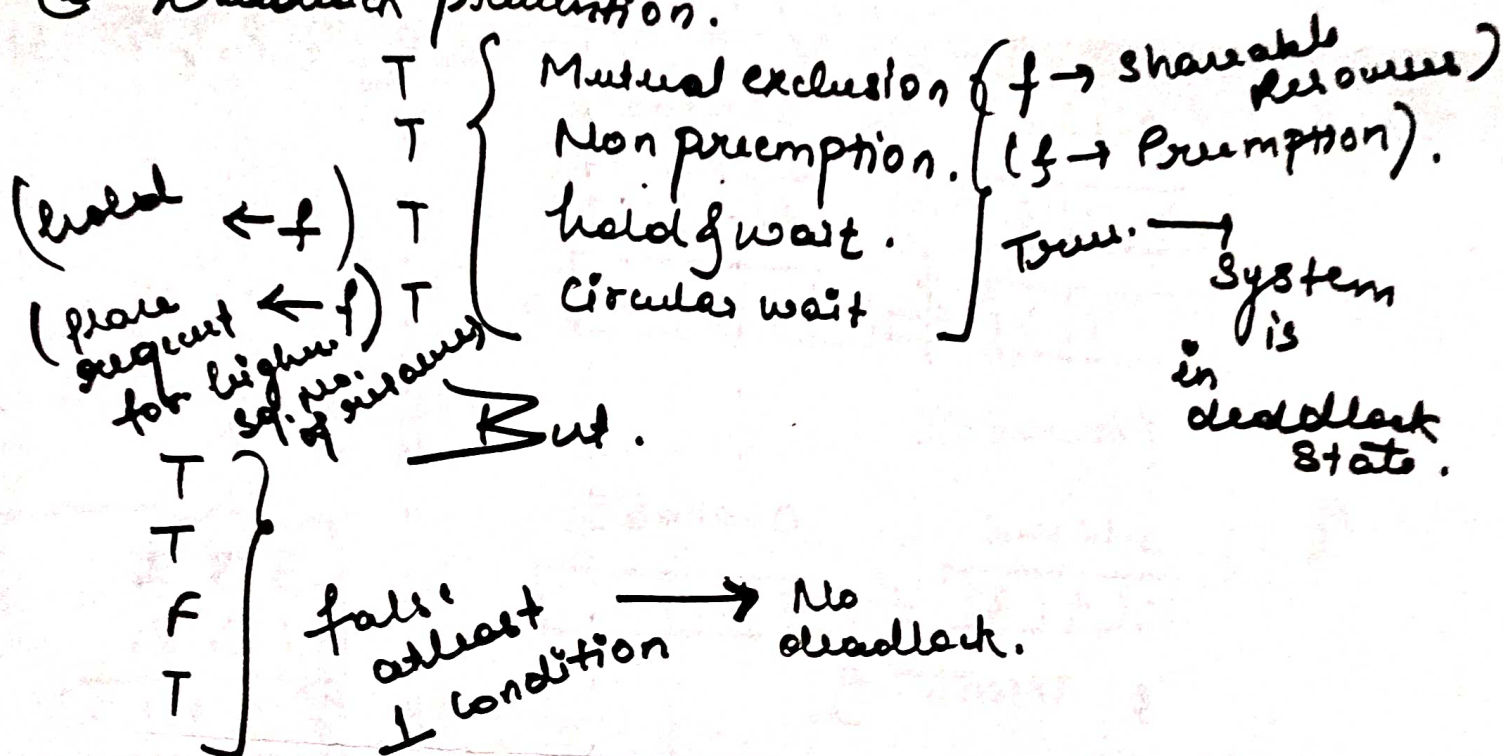 Deadlock prevention.
T { Mutual exclusion (f → Shareable Resources)
T Non preemption. (f → Preemption).
(hold ← f) T hold & wait.
(place request for higher sq. no. of resources ← f) T Circular wait
True. → System is in deadlock state.
But.
T
T
F false atleast 1 condition → No deadlock.
T